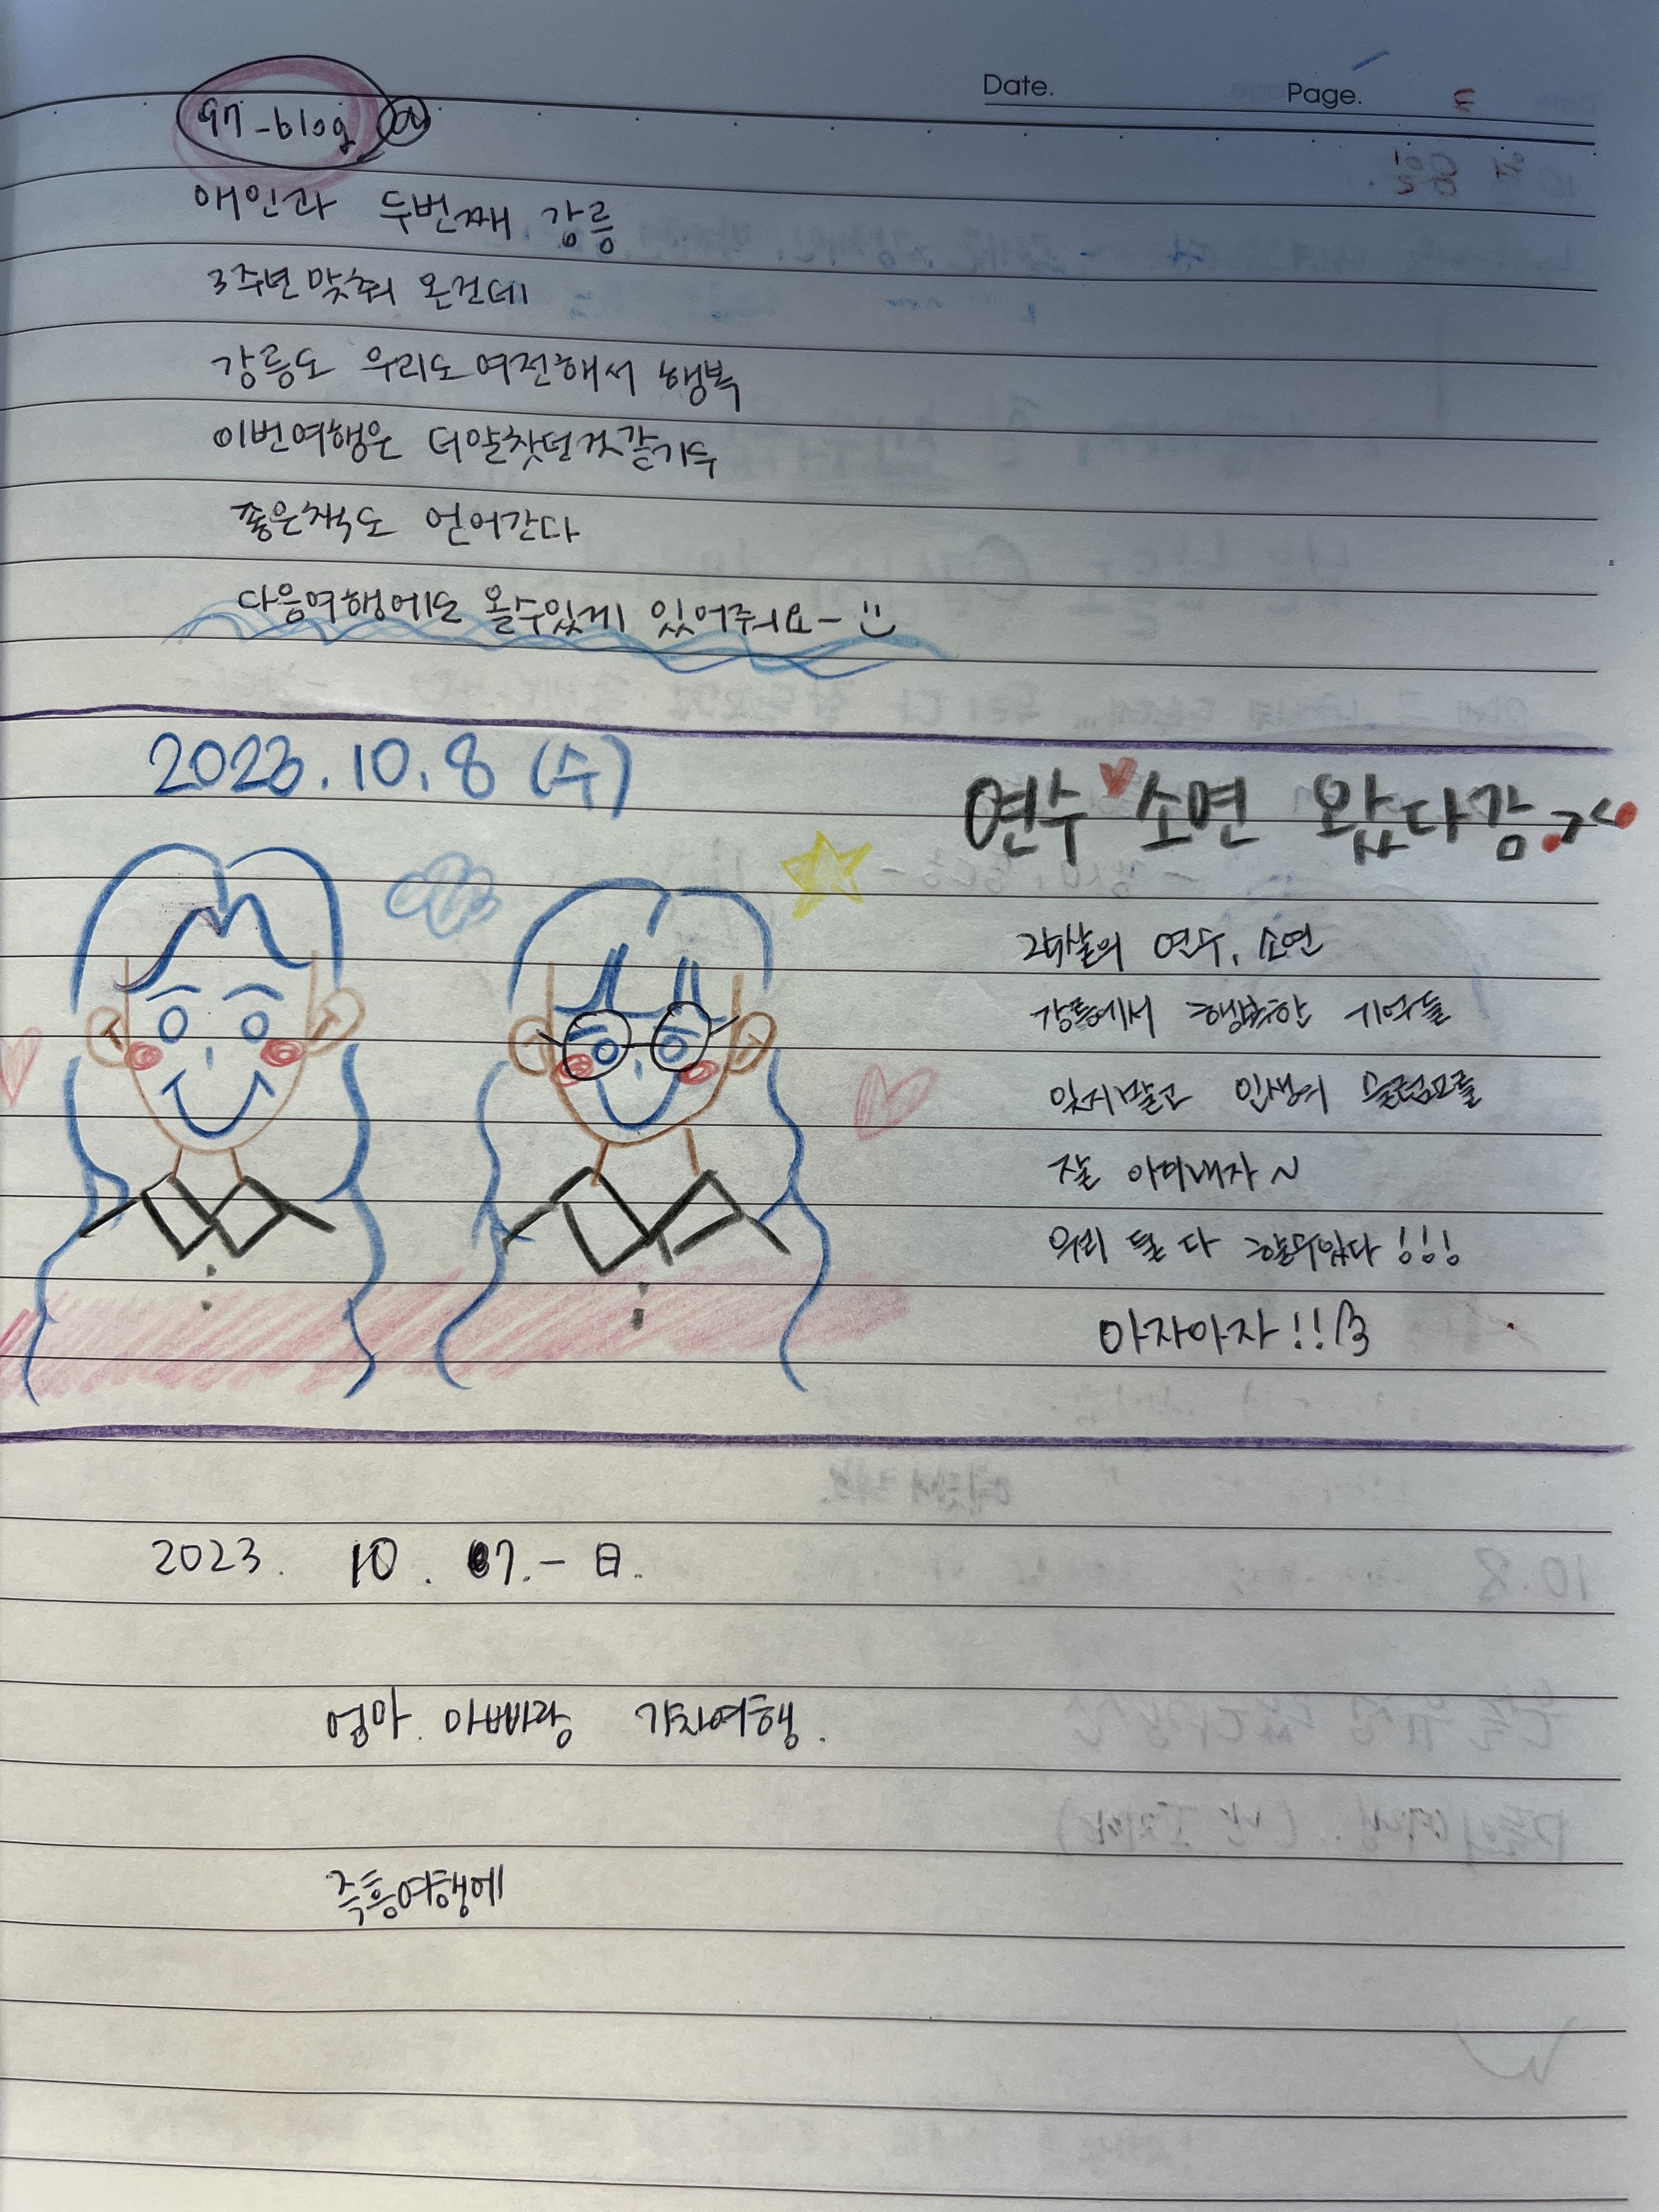 Date.
Page.
97-blog
애인과 두번째 강릉
3주년 맞춰 온건데
강릉도 우리도 여전해서 행복
이번여행은 더알찻던것같기두
좋은책도 얻어간다
다음여행에도 올수있게 있어줘요~
2023.10.8 (수)
연수♥소연 왔다감
24살의 연수, 소연
강릉에서 행복한 기억들
잊지말고 인생의 슬럼프를
잘 이겨내자~
우리 둘 다 할수있다!!!
아자아자!!
2023. 10. 07. - 日.
엄마. 아빠랑 기차여행.
즉흥여행에